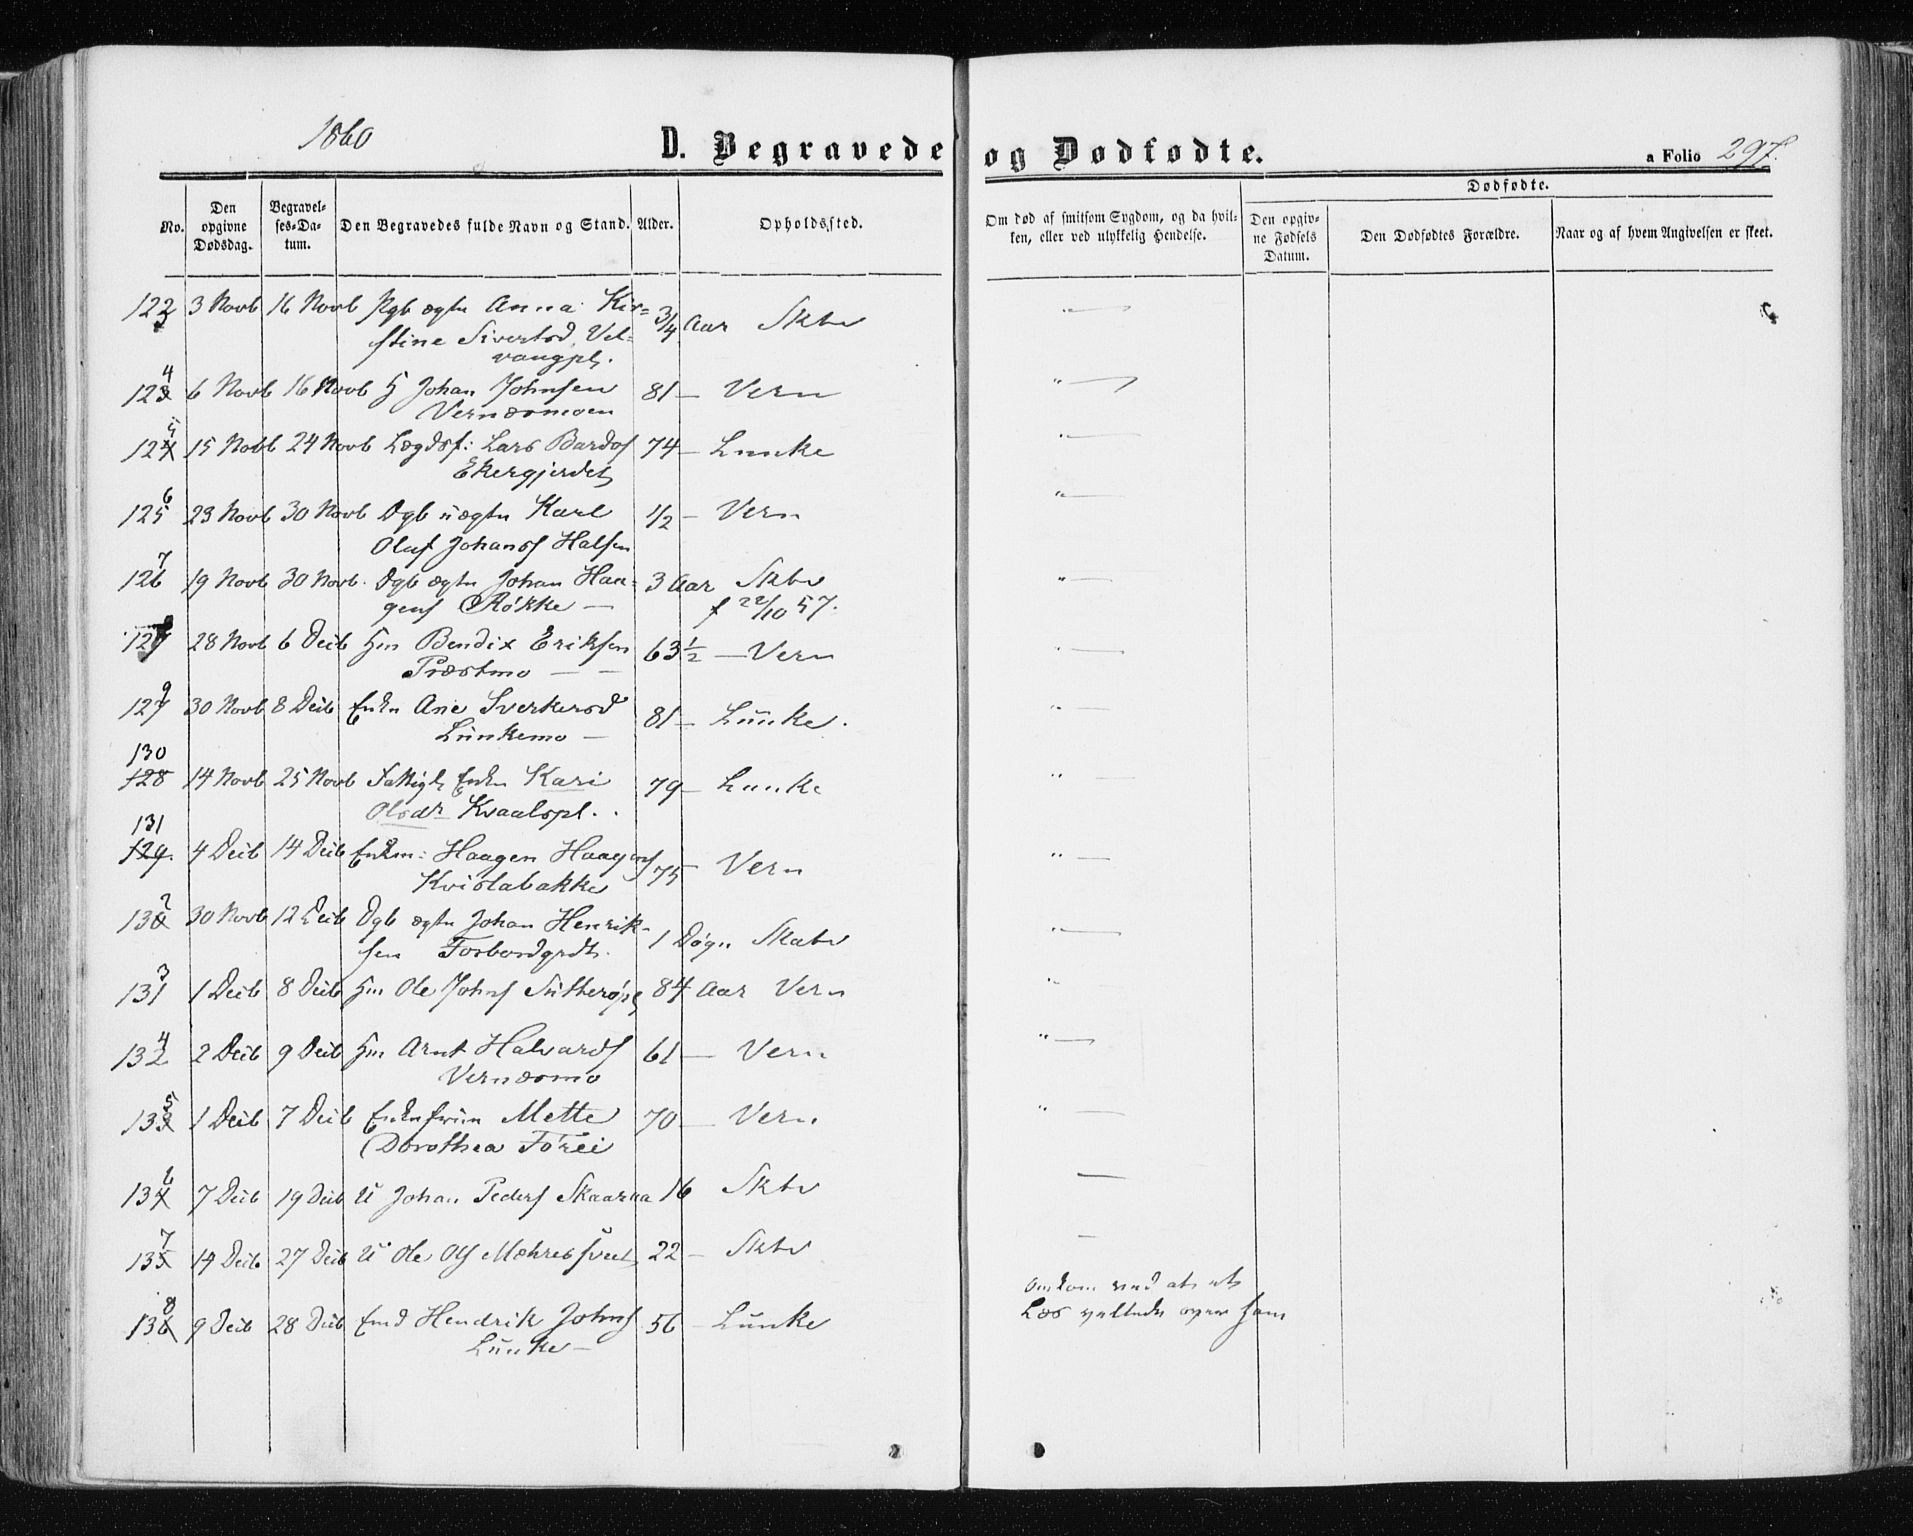 1860
D. Begravede og Dødfødte.
a Folio 297.
No.
Den opgivne Dødsdag.
Begravelses-Datum.
Den Begravedes fulde Navn og Stand.
Alder.
Opholdssted.
Om død af smitsom Sygdom, og da hvilken, eller ved ulykkelig Hendelse.
Dødfødte.
Den opgivne Fødsels Datum.
Den Dødfødtes Forældre.
Naar og af hvem Angivelsen er skeet.
122 3 3 Novb 16 Novb Pgb ægte Anna Kir= 3/4 Aar Sktv
stine Sivertsd. Vel=
vangpl.
123 4 6 Novb 16 Novb Johan Johnsen 81 — Vern
Vernæsmoen
124 5 15 Novb 24 Novb Lægdsf: Lars Bardsf 74 — Lunke
Ekergjerdet
125 6 23 Novb 30 Novb Dgb uægte Karl 1/2 — Vern
Oluf Johansf Halsen
126 7 19 Novb 30 Novb. Dgb ægte Johan Haa= 3 Aar Sktv
gens Røkke — f 22/10 57.
127 8 28 Novb 6 Decb Gm Bendix Eriksen 63 1/2 — Vern
Præstmo — —
127 9 30 Novb 8 Decb Enke Ane Sverkersd 81 — Lunke.
Lunkemo —
130
128 14 Novb 25 Novb Fattigl Enke Kari 79 — Lunke
Olsdr Kvaalspl.
131
129. 4 Decb 14 Decb Enkm: Haagen Haagens 75 Vern
Kvislabakke
130 2 30 Novb 12 Decb Dgb ægte Johan Henrik- 1 Døgn Skatv
sen Forbordgrdt.
131 3 1 Decb 8 Decb Gm Ole Johnsf 84 Aar Vern
132 4 2 Decb 9 Decb Gm Arnt Halvards 61 — Vern
Vernæsmo
133 5 1 Decb 7 Decb Enkefruen Mette 70 — Vern
Dorothea
134 6 7 Decb 19 Decb U Johan Peders Skaaraa 16 Sktv
135 7 14 Decb 27 Decb U Ole Ols Mæhre 22 — Sktv
136 8 9 Decb 28 Decb Hendrik Johns 56 — Lunke
Lunke —
Omkom ved at et
Læs veltede over ham